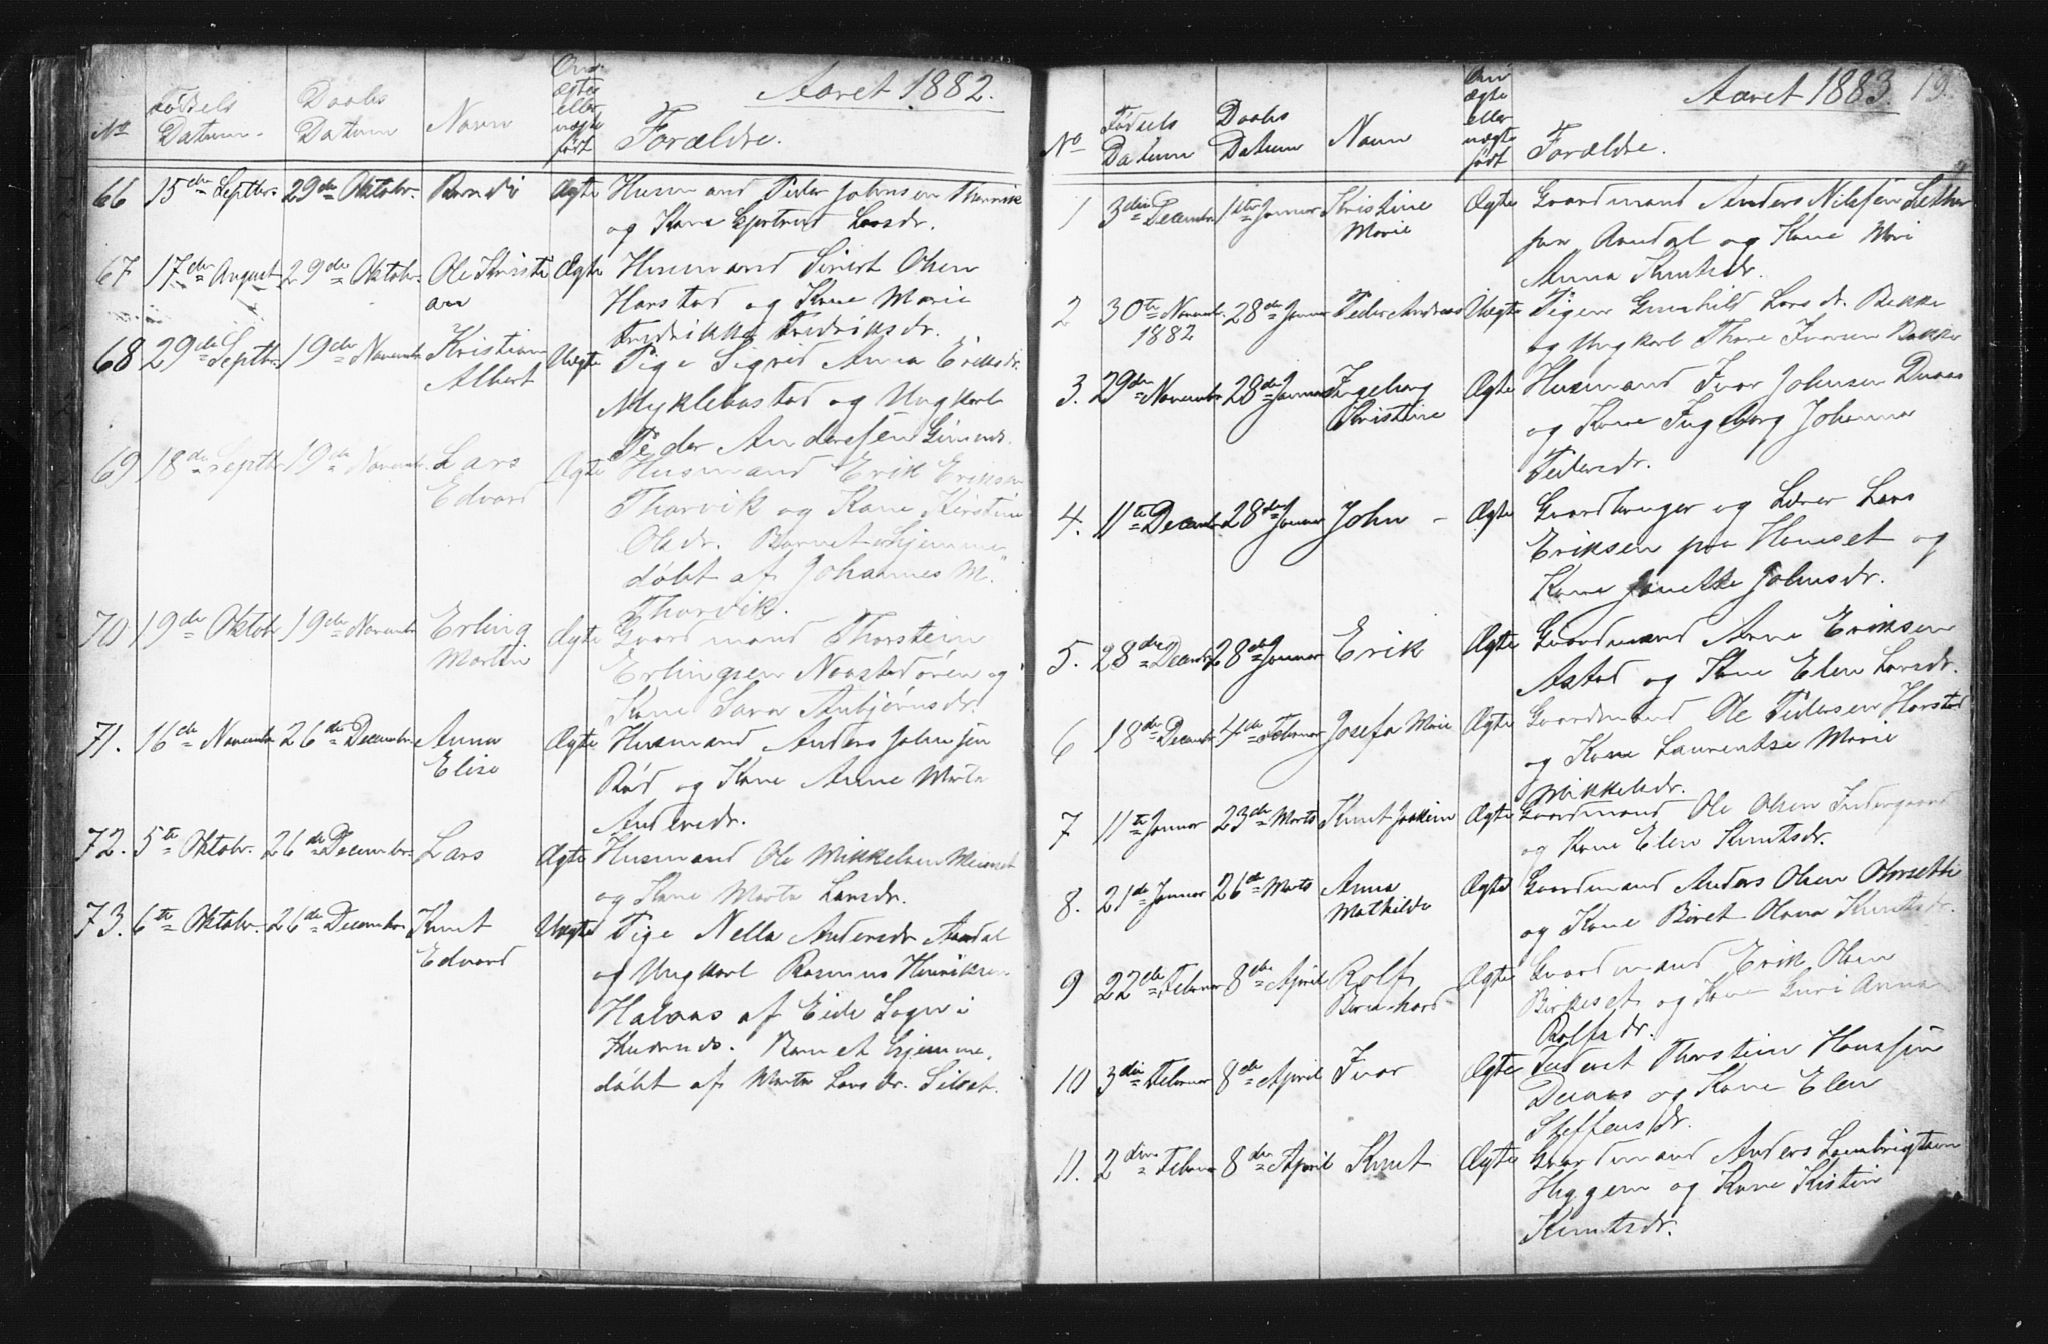 Aaret 1882.
No
Fødsels Datum.
Daabs Datum
Navn
Om ægte eller uægte født
Forældre.
66 15de Septbr. 29de Oktobr. Berndi Ægte Husmand Peder Johnsen Thorvik
og Kone Gjertrud Larsdr.
67 17de August 29de Oktobr. Ole Kristi Ægte Husmand Sivert Olsen
an Harstad og Kone Marie
Fredrikke Fredriksdr.
68 29de Septbr. 19de Novembr. Kristian Uægte Pige Sigrid Anna Eriksdr.
Albert Myklebostad og Ungkarl
Peder Andersen Gimnes.
69 18de Septbr. 19de Novembr. Lars Ægte Husmand Erik Eriksen
Edvard Thorvik og Kone Kirstine
Olsdr. Barnet hjemme
døbt af Johannes M.
Thorvik.
70 19de Oktobr 19de Novembr Erling Ægte Gaardmand Thorstein
Martin Erlingsen Naastadøren og
Kone Sara Anbjørnsdr.
71. 16de Novembr 26de Decembr. Anna Ægte Husmand Anders Johnsen
Elise Rød og Kone Anne Marta
Andersdr.
72. 5te Oktobr. 26de Decembr. Lars Ægte Husmand Ole Mikkelsen
og Kone Marta Larsdr.
73. 6te Oktobr. 26de Decembr. Knut Uægte Pige Nella Andersdr Aandal
Edvard og Ungkarl Rasmus Henriksen
Halaas af Eide Sogn i
Barnet hjemme
døbt af Marta Larsdr. Silset.
Aaret 1883. 19.
No
Fødsels Datum
Daabs Datum
Navn
Om ægte eller uægte født
Forældre.
1 3die Decembr 1ste Januar Kristine Ægte Gaardmand Anders Nilsen
Marie Aandal og Kone Mari
Anna Knutsdr.
2 30te Novembr. 28de Januar Peder Andreas Uægte Pigen Gunhild Larsdr. Bakke
1882 og Ungkarl Thore Iversen Bakke
3. 29de Novembr 28de Januar Ingeborg Ægte Husmand Ivar Johnsen Duaas
Kristine og Kone Ingeborg Johanna
Pedersdr.
4. 11te Decembr 28de Januar John - Ægte Gaardbruger og Lærer Lars
Eriksen paa Haneset og
Kone Janikke Johnsdr.
5. 28de Decembr 28de Januar Erik Ægte Gaardmand Arne Eriksen
Astad og Kone Elen Larsdr.
6 18de Decembr 4de Februar Josefa Marie Ægte Gaardmand Ole Pedersen Harstad
og Kone Laurentse Marie
Mikkelsdr.
7 11te Januar 23de Marts Knut Joakim Ægte Gaardmand Ole Olsen Indergaard
og Kone Elen Knutsdr.
8. 21de Januar 26de Marts Anna Ægte Gaardmand Anders Olsen Orset
Mathilde og Kone Beret Olava Knutsdr.
9 22de Februar 8de April Rolf Ægte Gaardmand Erik Olsen
Bernhard Birkeset og Kone Guri Anna
Rolfsdr.
10 3die Februar 8de April Ivar Ægte Thorstein Hansen
Duaas og Kone Elen
Steffensdr.
11. 2den Februar 8de April Knut Ægte Gaardmand Anders Lambrigtsen
Huggem og Kone Kistin
Knutsdr.